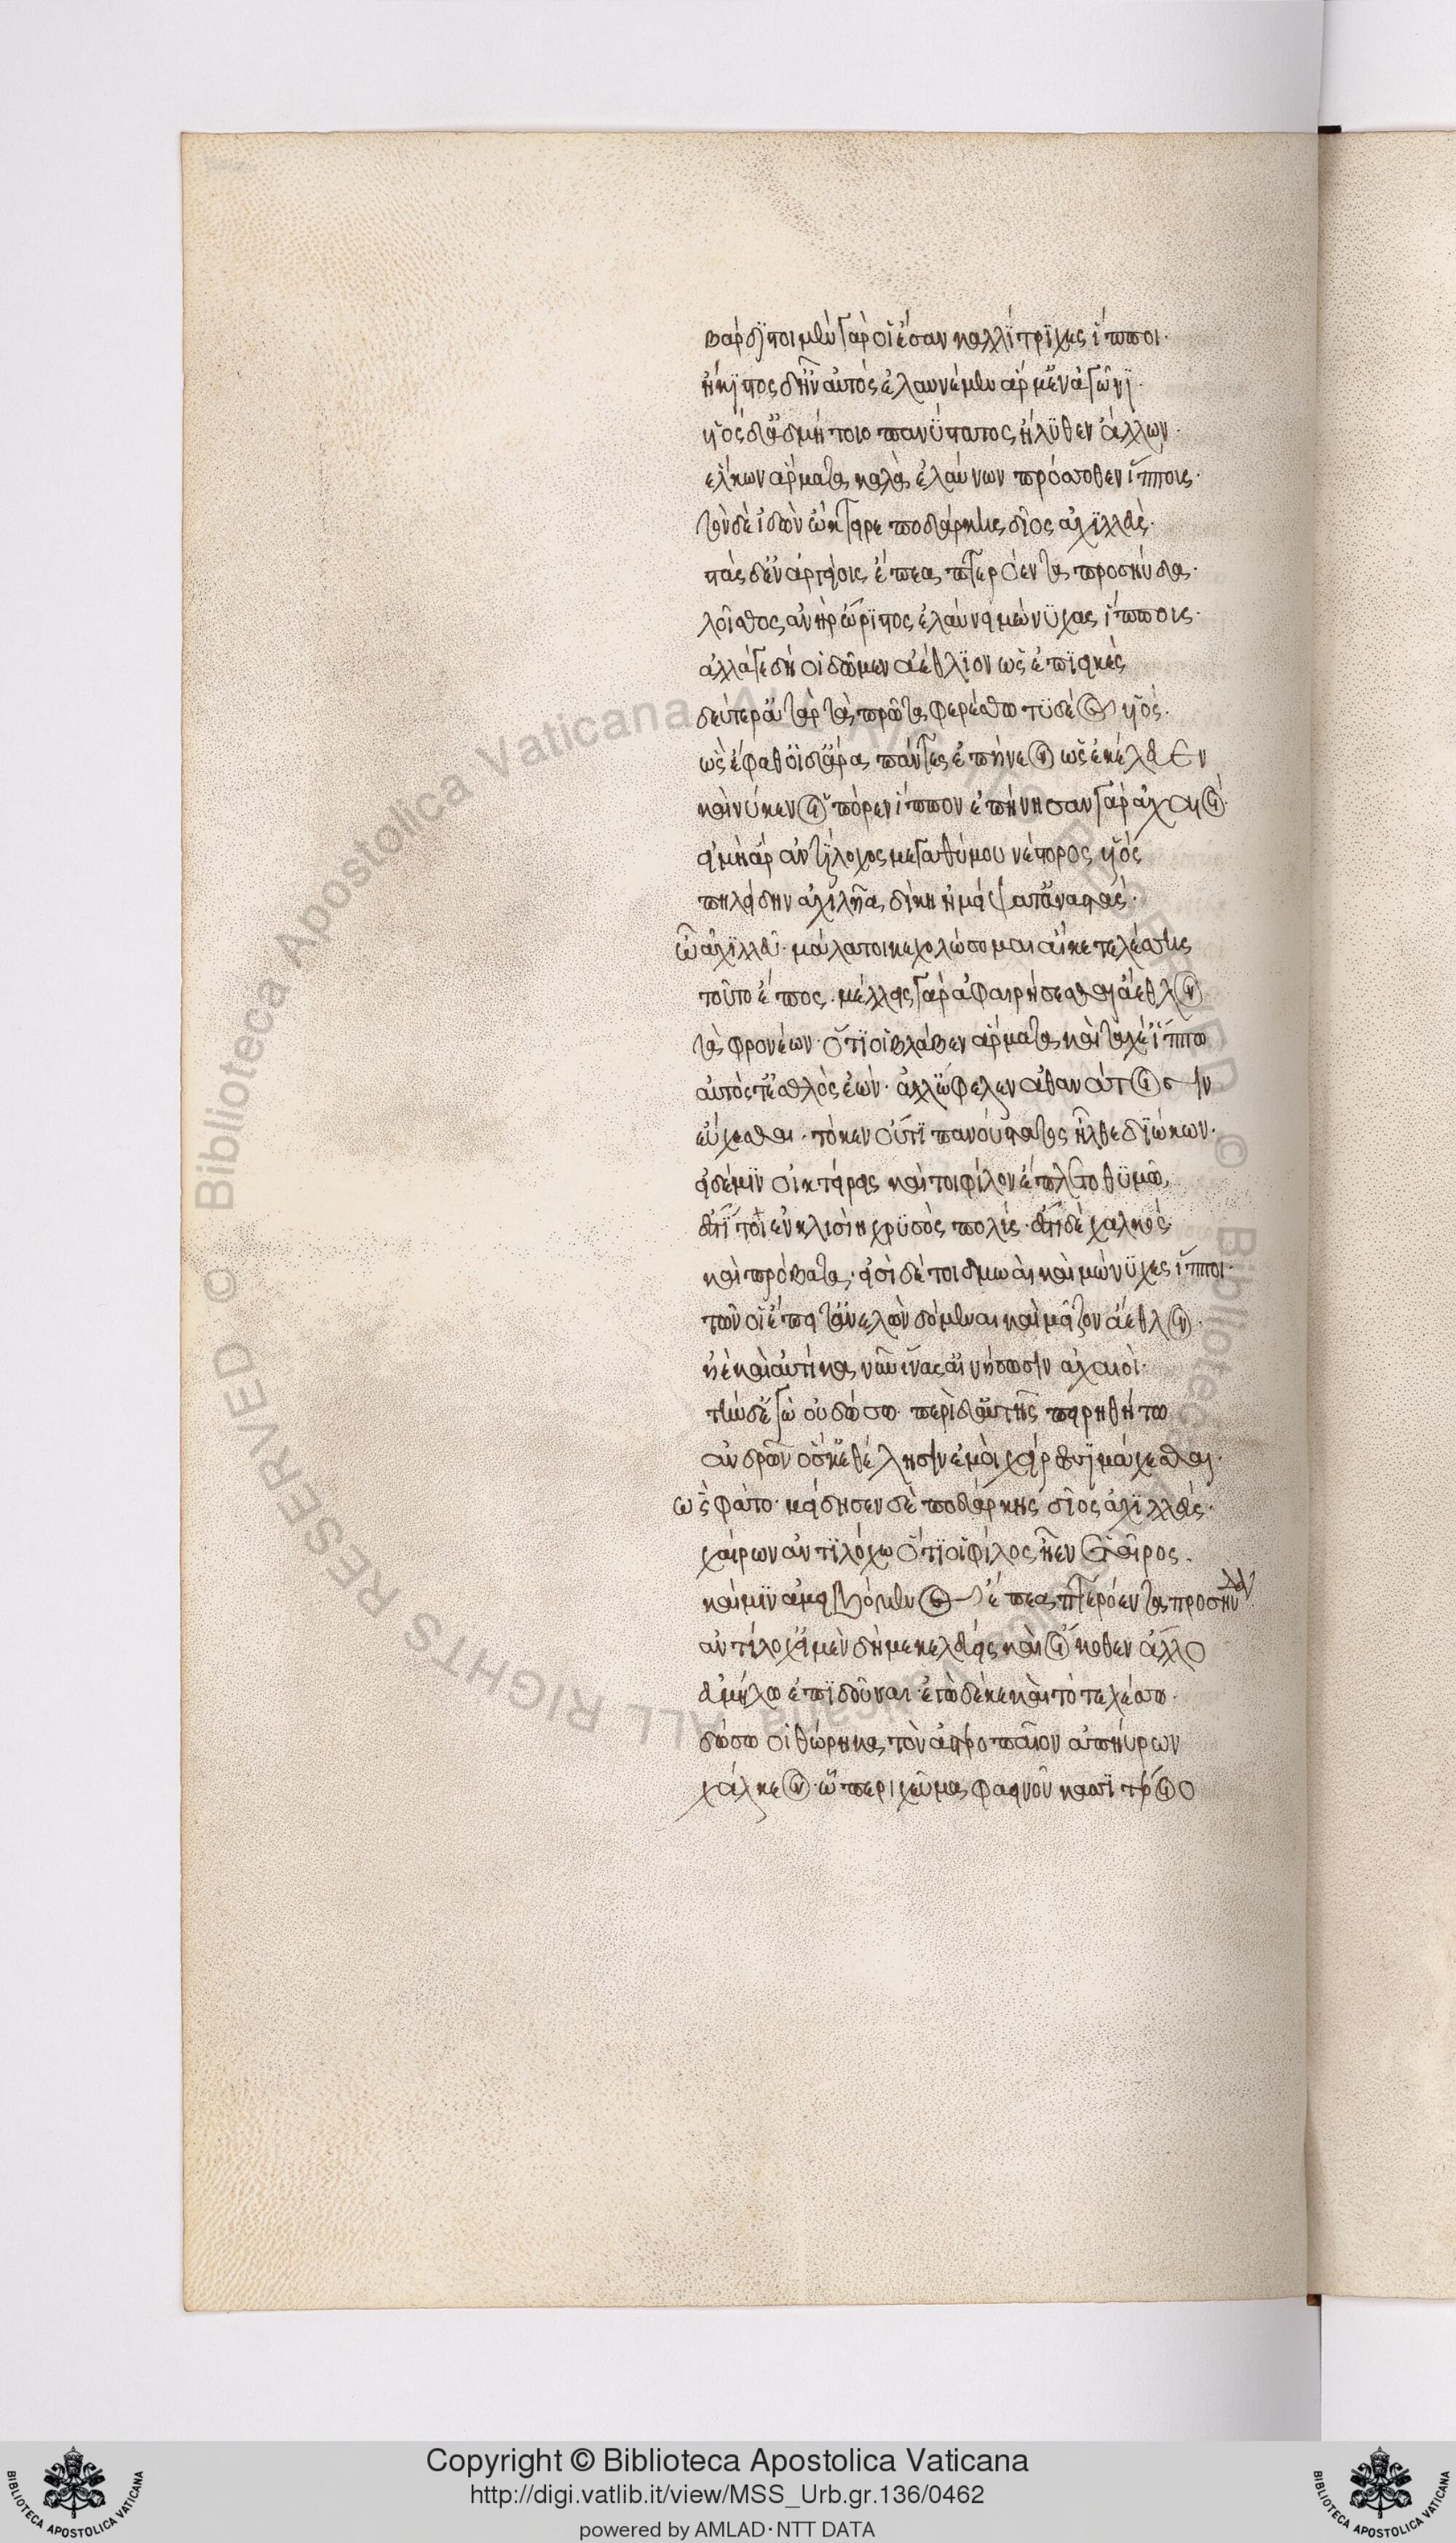 βάρδιστοι μὲν γάρ οἱ ἔσαν καλλίτριχες ἵπποι·
ἥκιστος δ' ἦν αὐτὸς ἐλαυνέμεν ἅρμ' ἐν ἀγῶνι·
υἱὸς δ' ἀδμήτοιο πανύστατος ἤλυθεν ἄλλων·
ἕλκων ἅρματα καλὰ ἐλαύνων πρόσσοθεν ἵππους·
τὸν δὲ ἰδὼν ᾤκτειρε ποδάρκης δῖος ἀχιλλεὺς·
στὰς δ' ἐν ἀργείοις ἔπεα πτερόεντα προσηύδα·
λοῖσθος ἀνὴρ ὤριστος ἐλαύνει μώνυχας ἵππους·
ἀλλ' ἄγε δή οἱ δῶμεν ἀέθλιον ὡς ἐπιεικὲς
δεύτερ' ἀτὰρ τὰ πρῶτα φερέσθω τυδέος υἱός·
ὣς ἔφαθ' οἱ δ' ἄρα πάντες ἐπῄνεον ὡς ἐκέλευεν
καί νύ κέν οἱ πόρεν ἵππον ἐπῄνησαν γὰρ ἀχαιοί·
εἰ μὴ ἄρ' ἀντίλοχος μεγαθύμου νέστορος υἱὸς
πηλείδην ἀχιλῆα δίκῃ ἠμείψατ' ἀναστάς·
ὦ ἀχιλλεῦ· μάλα τοι κεχολώσομαι αἴ κε τελέσσῃς
τοῦτο ἔπος· μέλλεις γὰρ ἀφαιρήσεσθαι ἄεθλον
τὰ φρονέων· ὅτι οἱ βλάβεν ἅρματα καὶ ταχέ' ἵππω
αὐτός τ' ἐσθλὸς ἐών· ἀλλ' ὤφελεν ἀθανάτοισιν
εὔχεσθαι· τό κεν οὔτι πανύστατος ἦλθε διώκων·
εἰ δέ μιν οἰκτείρεις καί τοι φίλον ἔπλετο θυμῷ,
ἔστι τοι ἐν κλισίῃ χρυσὸς πολύς· ἔστι δὲ χαλκὸς
καὶ πρόβατα· εἰσὶ δέ τοι δμωαὶ καὶ μώνυχες ἵπποι·
τῶν οἱ ἔπειτ' ἀνελὼν δόμεναι καὶ μεῖζον ἄεθλον·
ἠὲ καὶ αὐτίκα νῦν ἵνα σ' αἰνήσωσιν ἀχαιοί·
τὴν δ' ἐγὼ οὐ δώσω· περὶ δ' αὐτῆς πειρηθήτω
ἀνδρῶν ὅς κ' ἐθέλῃσιν ἐμοὶ χείρεσσι μάχεσθαι·
ὣς φάτο· μείδησεν δὲ ποδάρκης δῖος ἀχιλλεὺς·
χαίρων ἀντιλόχῳ ὅτι οἱ φίλος ἦεν ἑταῖρος·
καί μιν ἀμειβόμενος ἔπεα πτερόεντα προσηύδα
ἀντίλοχ' εἰ μὲν δή με κελεύεις οἴκοθεν ἄλλο
εὐμήλῳ ἐπιδοῦναι· ἐγὼ δέ κε καὶ τὸ τελέσσω·
δώσω οἱ θώρηκα τὸν ἀστεροπαῖον ἀπηύρων
χάλκεον· ᾧ πέρι χεῦμα φαεινοῦ κασσιτέροιο
Copyright © Biblioteca Apostolica Vaticana
http://digi.vatlib.it/view/MSS_Urb.gr.136/0462
powered by AMLAD·NTT DATA